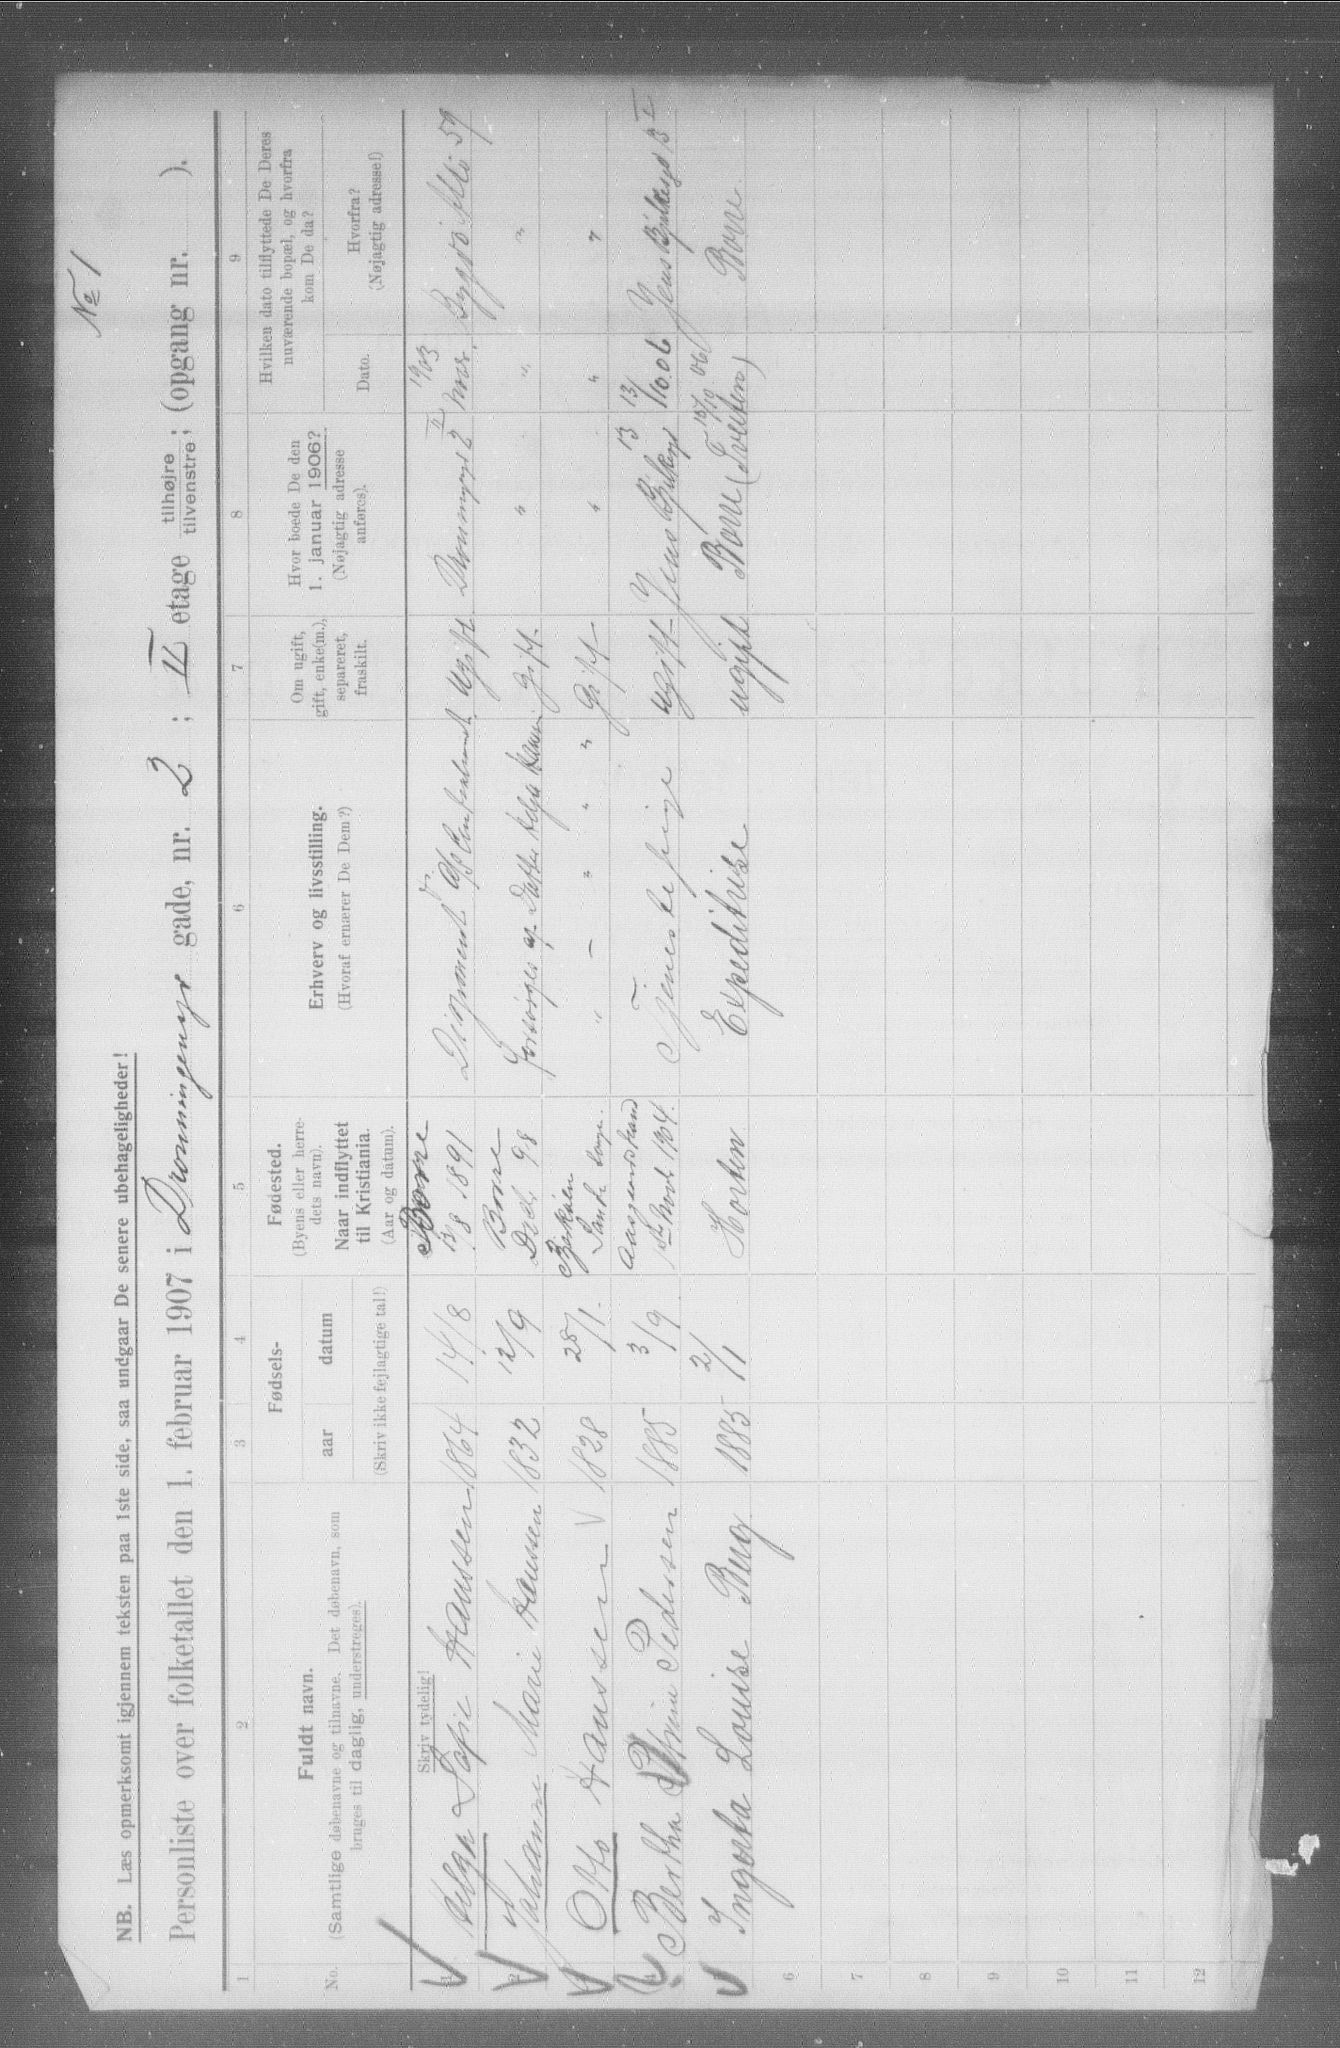 No 1
NB. Læs opmerksomt igjennem teksten paa 1ste side, saa undgaar De senere ubehageligheder!
Personliste over folketallet den 1. februar 1907 i Dronningensgs gade, nr. 2 ; II etage tilhøjre tilvenstre ; (opgang nr. ).
1 2 3 4 5 6 7 8 9
No.
Fuldt navn.
(Samtlige døbenavne og tilnavne. Det døbenavn, som
bruges til daglig, understreges).
Fødsels-
aar datum
(Skriv ikke fejlagtige tal!)
Fødested.
(Byens eller herre-
dets navn).
Naar indflyttet
til Kristiania.
(Aar og datum).
Erhverv og livsstilling.
(Hvoraf ernærer De Dem?)
Om ugift,
gift, enke(m.),
separeret,
fraskilt.
Hvor boede De den
1. januar 1906?
(Nøjagtig adresse
anføres).
Hvilken dato tilflyttede De Deres
nuværende bopæl, og hvorfra
kom De da?
Dato.
Hvorfra?
(Nøjagtig adresse!)
Skriv tydelig!
1 Helga Sofie Hanssen 1864 14/8 Borre 8 1891 Ugift Dronningsgt 2 II 19/03 Bygdö Allé 59
2 Johanne Marie Hanssen 1832 12/9 Borre 98 Forsörges af Datter Helga Hanssen Gift " " "
3 Otto Hanssen 1828 28/1 " — " " " Gift " " "
4 Bertha Pedersen 1885 3/9 1904. Tjenestepige ugift Jens Bjelkesgt 13 13/10.06 Jens Bjelkesgt 13 I
5 Ingerta Louise Berg 1885 2/1 Horten Expeditrise ugift Borre 15/10 06 Borre
6
7
8
9
10
11
12